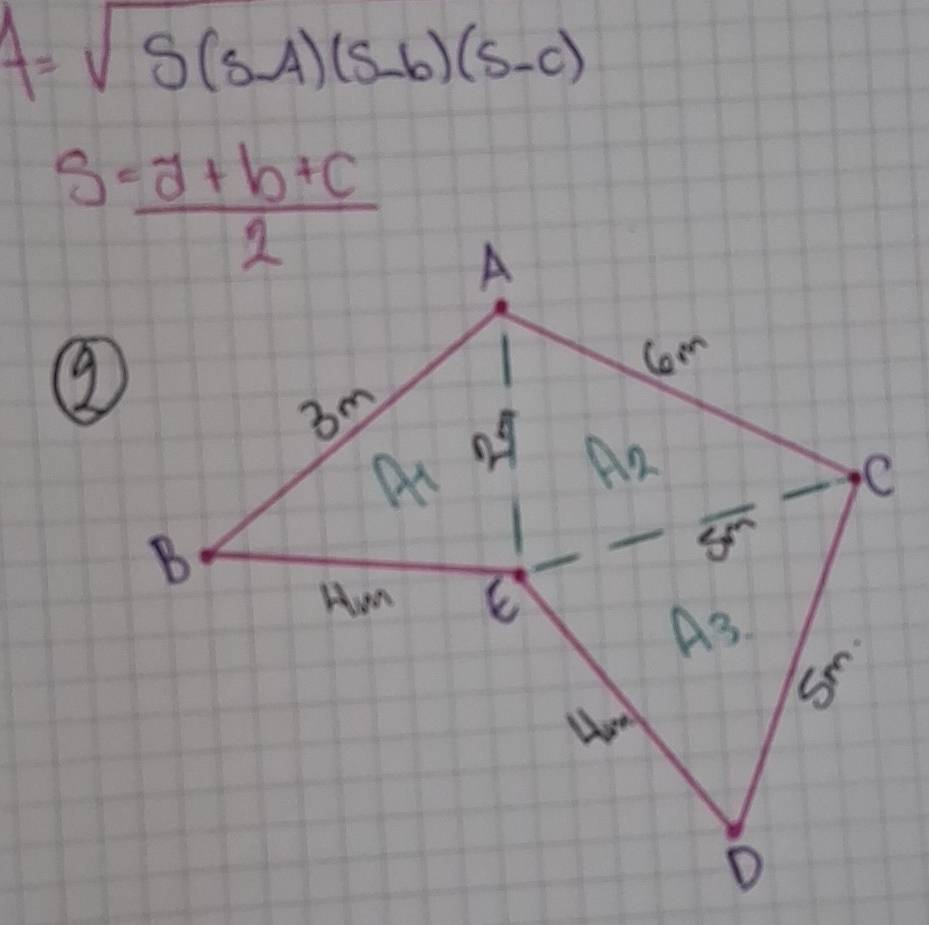 A=√S(S-A)(S-b)(S-c)
S=a+b+c
2
A
2
6m
3m
A1
A2
C
B
5m
4m
E
A3.
5m.
4m
D